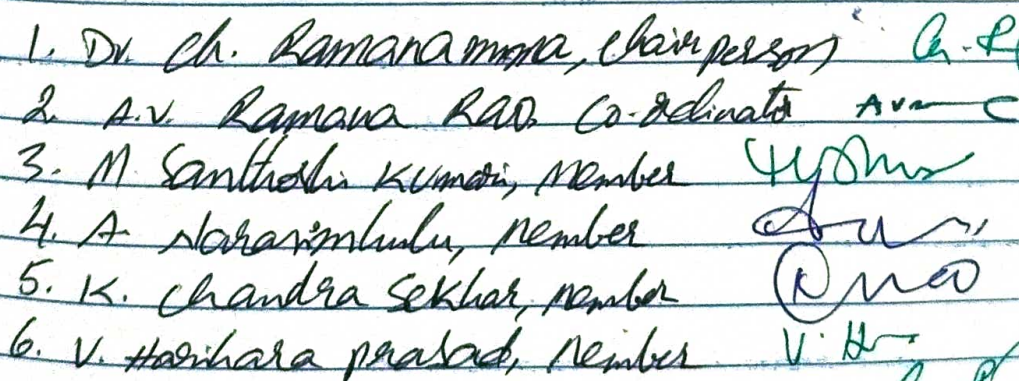 1. Dr. Ch. Ramanamma, Chairperson
2. A.V. Ramana Rao, Co-ordinator
3. M Santhoshi Kumari, Member
4. A Narasimhulu, Member
5. K. Chandra Sekhar, Member
6. V. Harihara prasad, Member